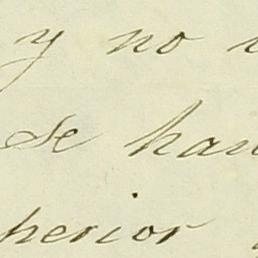 y no
Se han
perior